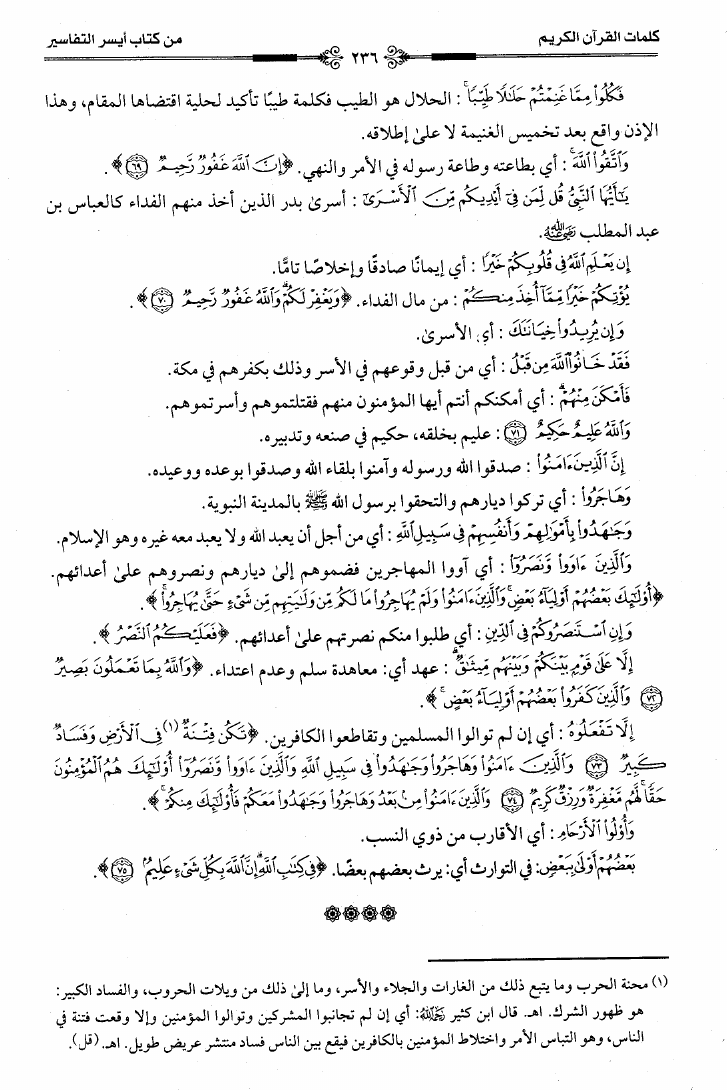 كلمات القرآن الكريم
٢٣٦
من كتاب أيسر التفاسير
فَكُلُوا۟ مِمَّا غَنِمْتُمْ حَلَـٰلًا طَيِّبًا ۚ : الحلال هو الطيب فكلمة طيبًا تأكيد لحلية اقتضاها المقام، وهذا
الإذن واقع بعد تخميس الغنيمة لا على إطلاقه.
وَٱتَّقُوا۟ ٱللَّهَ ۚ : أي بطاعته وطاعة رسوله في الأمر والنهي. ﴿إِنَّ ٱللَّهَ غَفُورٌ رَّحِيمٌ ۝٦٩﴾.
يَـٰٓأَيُّهَا ٱلنَّبِىُّ قُل لِّمَن فِىٓ أَيْدِيكُم مِّنَ ٱلْأَسْرَىٰٓ : أسرىٰ بدر الذين أخذ منهم الفداء كالعباس بن
عبد المطلب رضي الله عنه.
إِن يَعْلَمِ ٱللَّهُ فِى قُلُوبِكُمْ خَيْرًا : أي إيمانًا صادقًا وإخلاصًا تامًّا.
يُؤْتِكُمْ خَيْرًا مِّمَّآ أُخِذَ مِنكُمْ : من مال الفداء. ﴿وَيَغْفِرْ لَكُمْ ۗ وَٱللَّهُ غَفُورٌ رَّحِيمٌ ۝٧٠﴾.
وَإِن يُرِيدُوا۟ خِيَانَتَكَ : أي الأسرىٰ.
فَقَدْ خَانُوا۟ ٱللَّهَ مِن قَبْلُ : أي من قبل وقوعهم في الأسر وذلك بكفرهم في مكة.
فَأَمْكَنَ مِنْهُمْ ۗ : أي أمكنكم أنتم أيها المؤمنون منهم فقتلتموهم وأسرتموهم.
وَٱللَّهُ عَلِيمٌ حَكِيمٌ ۝٧١ : عليم بخلقه، حكيم في صنعه وتدبيره.
إِنَّ ٱلَّذِينَ ءَامَنُوا۟ : صدقوا الله ورسوله وآمنوا بلقاء الله وصدقوا بوعده ووعيده.
وَهَاجَرُوا۟ : أي تركوا ديارهم والتحقوا برسول الله ﷺ بالمدينة النبوية.
وَجَـٰهَدُوا۟ بِأَمْوَٰلِهِمْ وَأَنفُسِهِمْ فِى سَبِيلِ ٱللَّهِ : أي من أجل أن يعبد الله ولا يعبد معه غيره وهو الإسلام.
وَٱلَّذِينَ ءَاوَوا۟ وَّنَصَرُوٓا۟ : أي آووا المهاجرين فضموهم إلىٰ ديارهم ونصروهم علىٰ أعدائهم.
﴿أُو۟لَـٰٓئِكَ بَعْضُهُمْ أَوْلِيَآءُ بَعْضٍ ۚ وَٱلَّذِينَ ءَامَنُوا۟ وَلَمْ يُهَاجِرُوا۟ مَا لَكُم مِّن وَلَـٰيَتِهِم مِّن شَىْءٍ حَتَّىٰ يُهَاجِرُوا۟ ۚ﴾.
وَإِنِ ٱسْتَنصَرُوكُمْ فِى ٱلدِّينِ : أي طلبوا منكم نصرتهم علىٰ أعدائهم. ﴿فَعَلَيْكُمُ ٱلنَّصْرُ﴾.
إِلَّا عَلَىٰ قَوْمٍۭ بَيْنَكُمْ وَبَيْنَهُم مِّيثَـٰقٌ ۗ : عهد أي: معاهدة سلم وعدم اعتداء. ﴿وَٱللَّهُ بِمَا تَعْمَلُونَ بَصِيرٌ
۝٧٢ وَٱلَّذِينَ كَفَرُوا۟ بَعْضُهُمْ أَوْلِيَآءُ بَعْضٍ ۚ﴾.
إِلَّا تَفْعَلُوهُ : أي إن لم توالوا المسلمين وتقاطعوا الكافرين. ﴿تَكُن فِتْنَةٌ (١) فِى ٱلْأَرْضِ وَفَسَادٌ
كَبِيرٌ ۝٧٣ وَٱلَّذِينَ ءَامَنُوا۟ وَهَاجَرُوا۟ وَجَـٰهَدُوا۟ فِى سَبِيلِ ٱللَّهِ وَٱلَّذِينَ ءَاوَوا۟ وَّنَصَرُوٓا۟ أُو۟لَـٰٓئِكَ هُمُ ٱلْمُؤْمِنُونَ
حَقًّا ۚ لَّهُم مَّغْفِرَةٌ وَرِزْقٌ كَرِيمٌ ۝٧٤ وَٱلَّذِينَ ءَامَنُوا۟ مِنۢ بَعْدُ وَهَاجَرُوا۟ وَجَـٰهَدُوا۟ مَعَكُمْ فَأُو۟لَـٰٓئِكَ مِنكُمْ ۚ﴾.
وَأُو۟لُوا۟ ٱلْأَرْحَامِ : أي الأقارب من ذوي النسب.
بَعْضُهُمْ أَوْلَىٰ بِبَعْضٍ: في التوارث أي: يرث بعضهم بعضًا. ﴿فِى كِتَـٰبِ ٱللَّهِ ۗ إِنَّ ٱللَّهَ بِكُلِّ شَىْءٍ عَلِيمٌۢ ۝٧٥﴾.
(١) محنة الحرب وما يتبع ذلك من الغارات والجلاء والأسر، وما إلىٰ ذلك من ويلات الحروب، والفساد الكبير:
هو ظهور الشرك. اهـ. قال ابن كثير رحمه الله: أي إن لم تجانبوا المشركين وتوالوا المؤمنين وإلا وقعت فتنة في
الناس، وهو التباس الأمر واختلاط المؤمنين بالكافرين فيقع بين الناس فساد منتشر عريض طويل. اهـ. (قل).